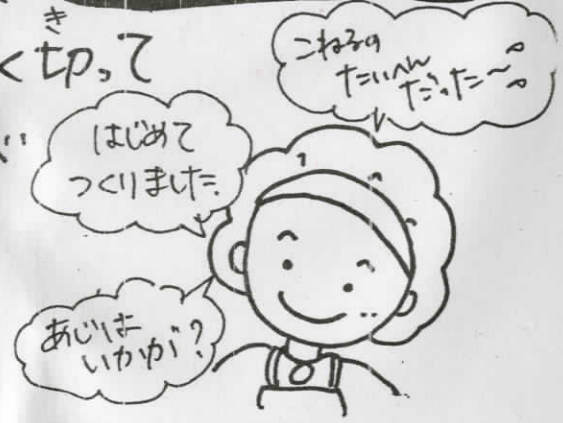 き
く切って
こねるの
たいへん
だった〜
はじめて
つくりました。
あじは
いかが?